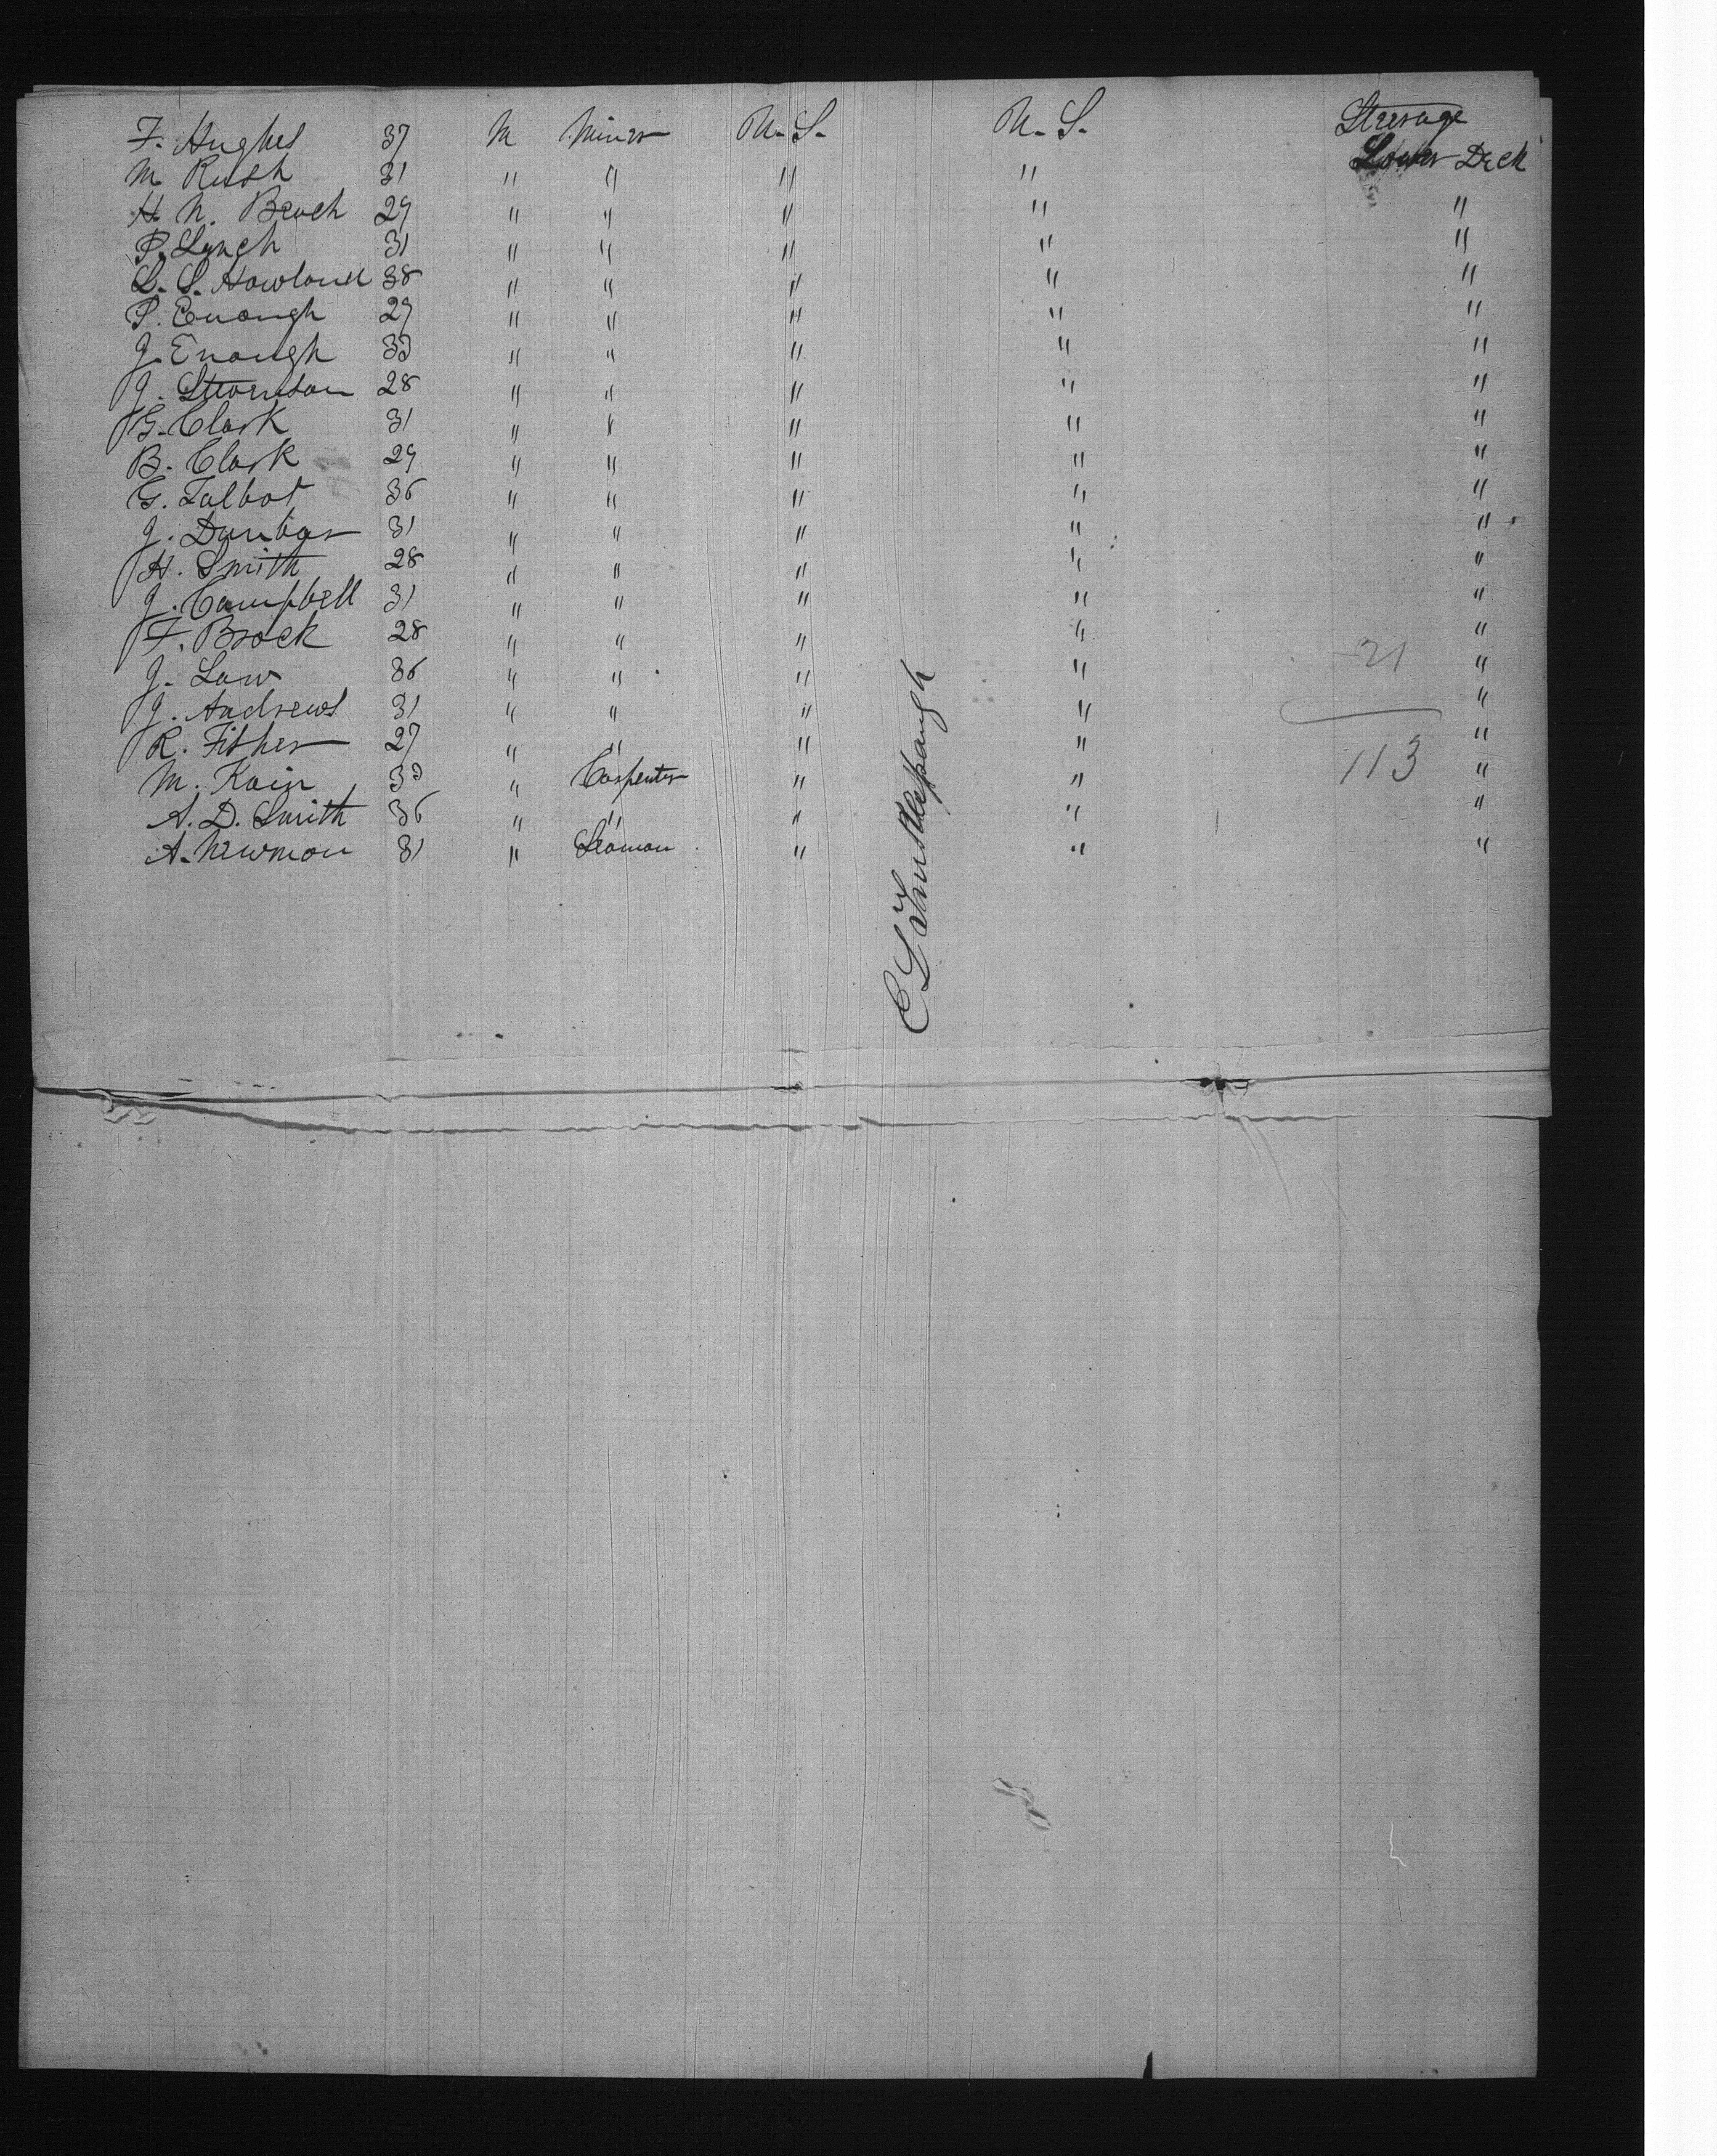 F. Hughes 37 M Miner U.S. U.S. Steerage
M Rush 31 " " " " Lower Deck
H. N. Beach 29 " " " " "
P. Lynch 31 " " " " "
L. S. Howland 38 " " " " "
P. Enough 29 " " " " "
J. Enough 33 " " " " "
J. Stevenson 28 " " " " "
G. Clark 31 " " " " "
B. Clark 29 " " " " "
G. Talbot 36 " " " " "
J. Dunbar 31 " " " " "
H. Smith 28 " " " " "
J. Campbell 31 " " " " "
F. Brock 28 " " " " "
J. Law 36 " " " " "
J. Andrews 31 " " " " "
R. Fisher 27 " " " " "
M. Kain " Carpenter " " "
A. D. Smith 36 " " " " "
A. Newman 31 " Seaman " " "
21
113